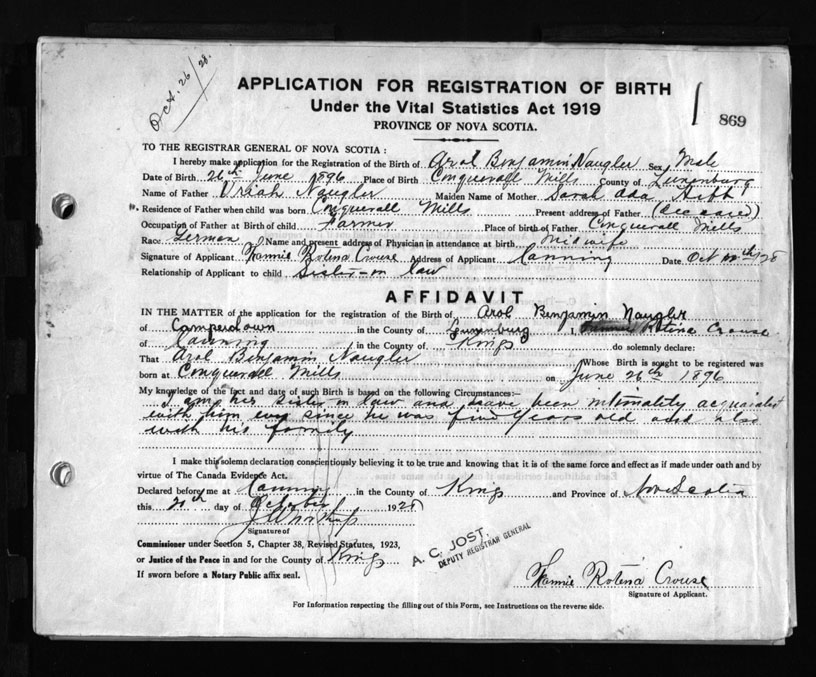 Oct. 26/28.
APPLICATION FOR REGISTRATION OF BIRTH
Under the Vital Statistics Act 1919
869
PROVINCE OF NOVA SCOTIA.
TO THE REGISTRAR GENERAL OF NOVA SCOTIA:
I hereby make application for the Registration of the Birth of Arol Benjamin Naugler Sex Male
Date of Birth 26th June 1896 Place of Birth Conquerall Mills County of Lunenburg
Name of Father Uriah Naugler Maiden Name of Mother Sarah Ada
Residence of Father when child was born Conquerall Mills Present address of Father (deceased)
Occupation of Father at Birth of child Farmer Place of birth of Father Conquerall Mills
Race German Name and present address of Physician in attendance at birth Midwife
Signature of Applicant Fannie Rotena Crouse Address of Applicant Canning Date Oct 28
Relationship of Applicant to child Sister-in law
AFFIDAVIT
IN THE MATTER of the application for the registration of the Birth of Arol Benjamin Naugler
of Camperdown in the County of Lunenburg I, Fannie Rotena Crouse
of Canning in the County of Kings do solemnly declare:
That Arol Benjamin Naugler Whose Birth is sought to be registered was
born at Conquerall Mills on June 26th 1896
My knowledge of the fact and date of such Birth is based on the following Circumstances:—
I am his sister in law and have been intimality acquaintet
with him ever since he was five years old and also
with his family
I make this solemn declaration conscientiously believing it to be true and knowing that it is of the same force and effect as if made under oath and by
virtue of The Canada Evidence Act.
Declared before me at Canning in the County of Kings and Province of Nova Scotia
this day of October 1928
Signature of
Commissioner under Section 5, Chapter 38, Revised Statutes, 1923,
or Justice of the Peace in and for the County of Kings
If sworn before a Notary Public affix seal.
A. C. JOST.
DEPUTY REGISTRAR GENERAL
Fannie Rotena Crouse
Signature of Applicant.
For Information respecting the filling out of this Form, see Instructions on the reverse side.